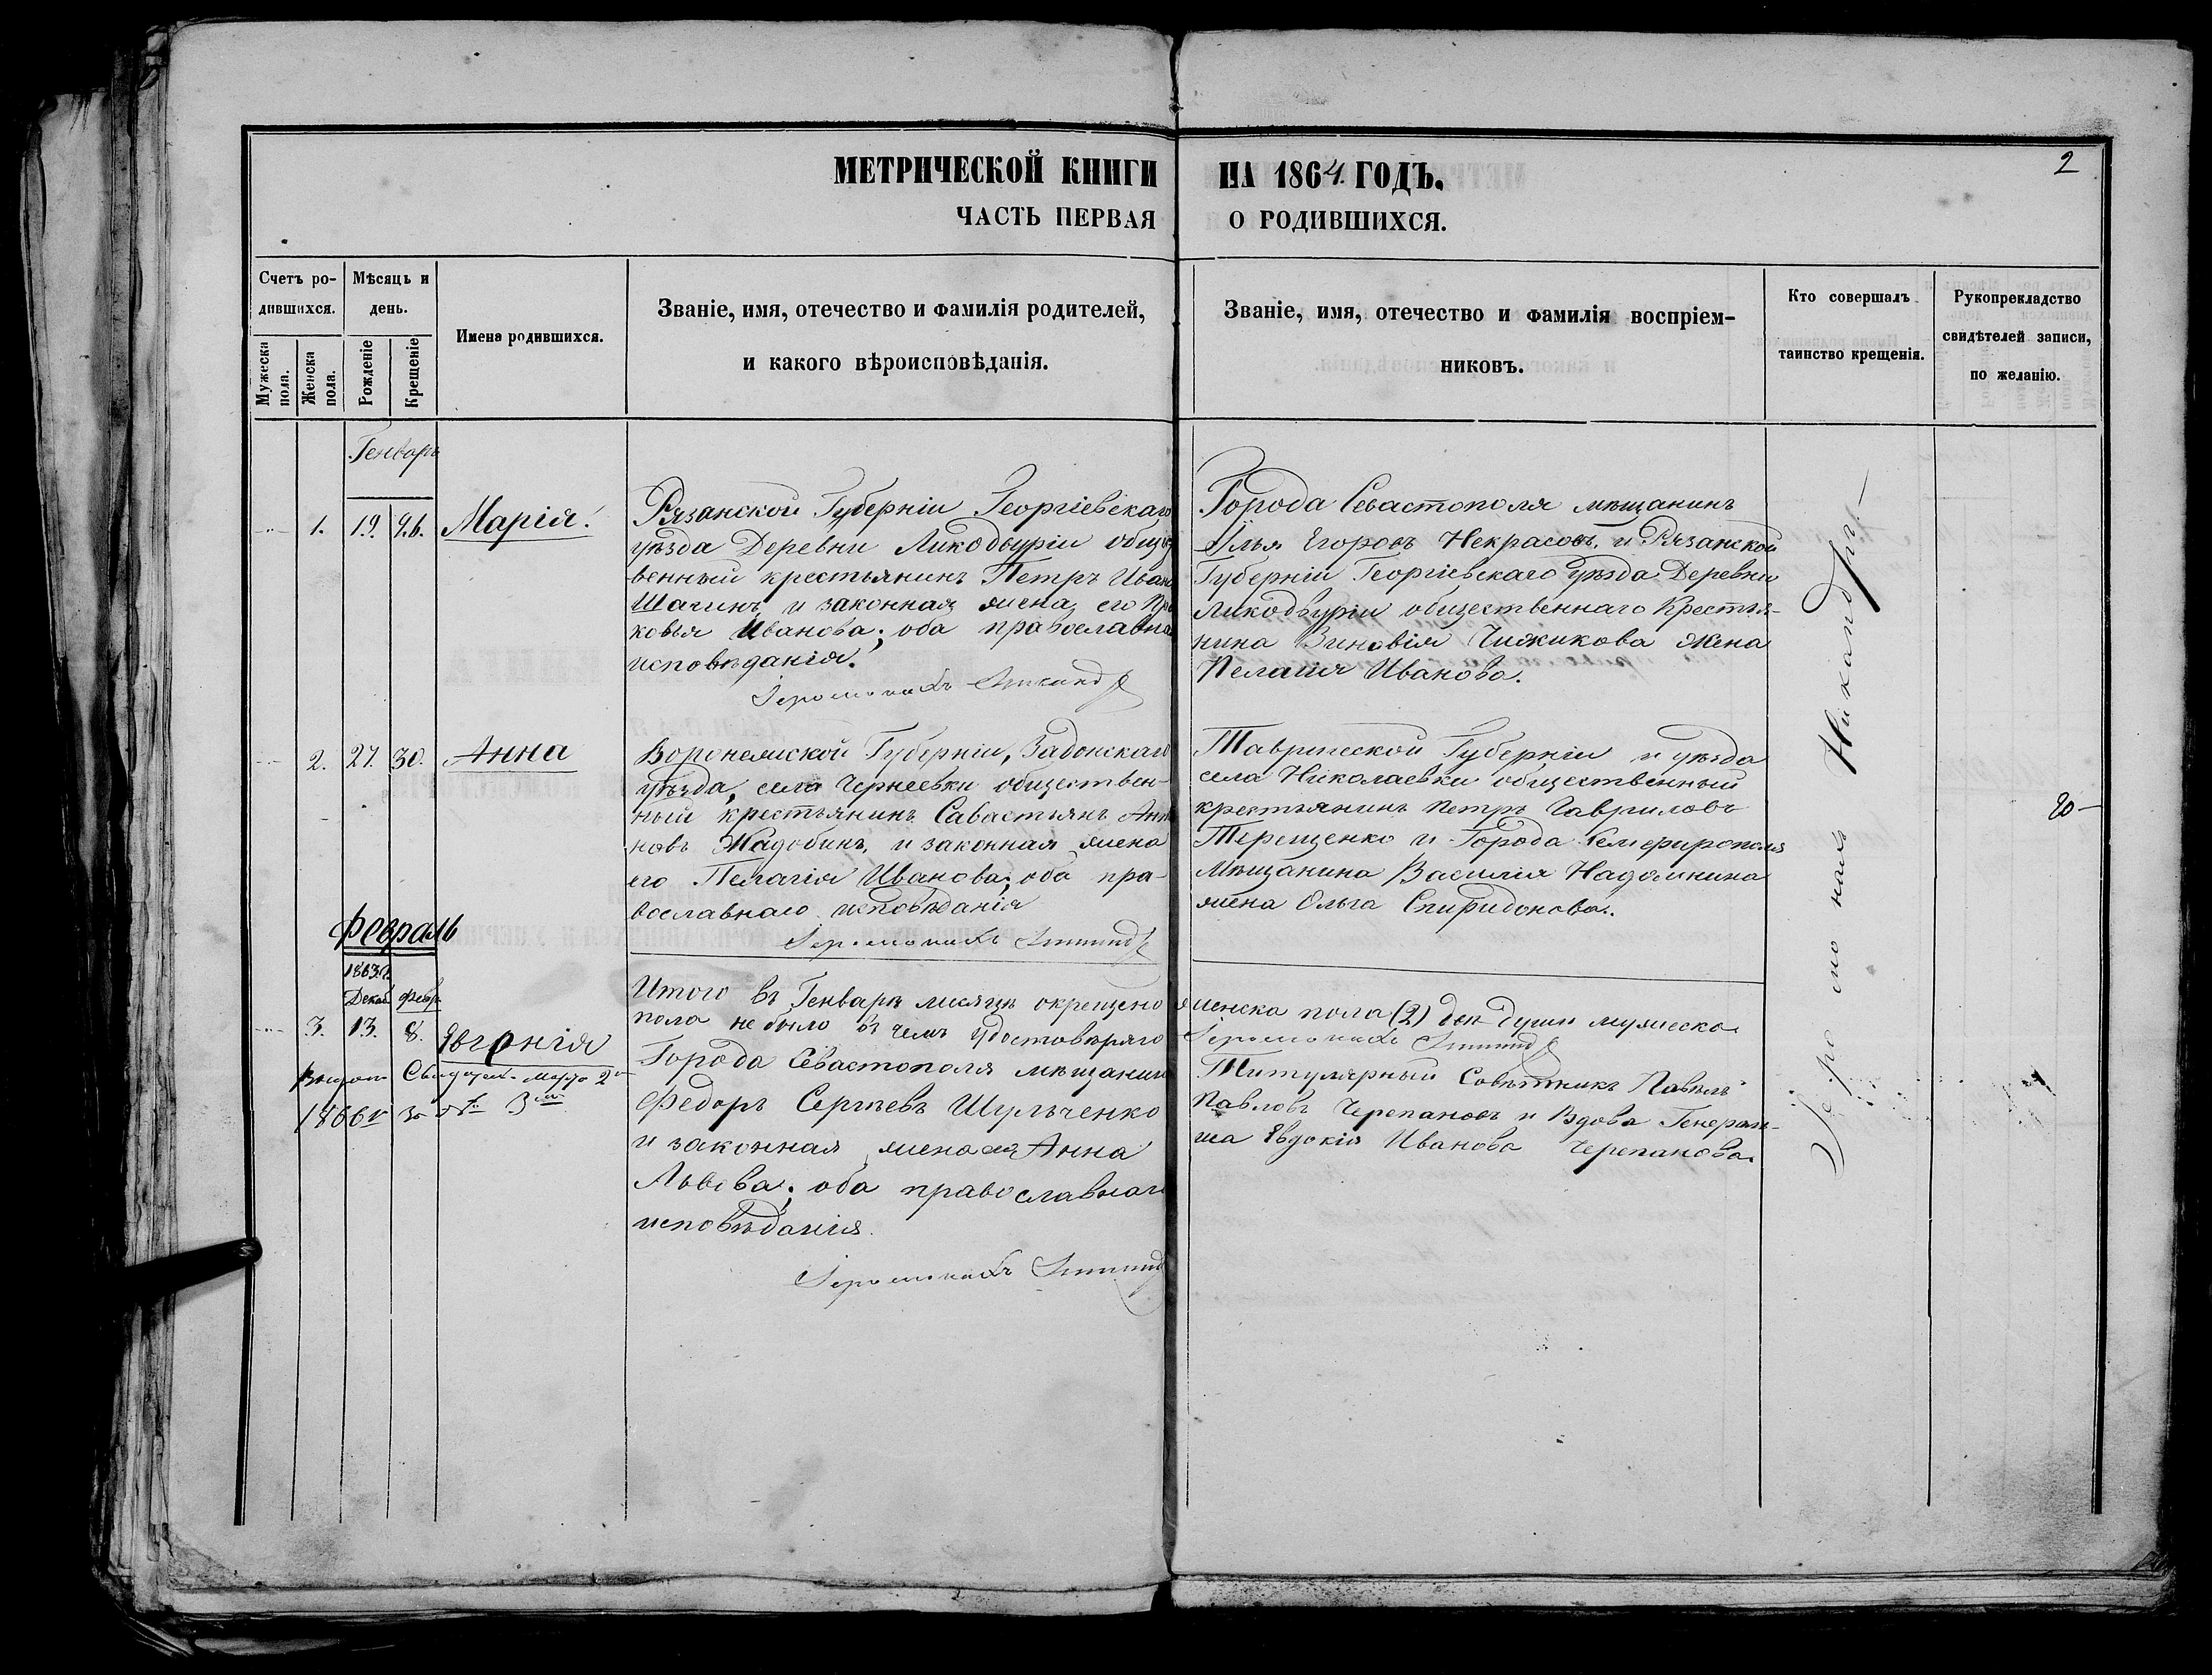 МЕТРИЧЕСКОЙ КНИГИ НА 1864. ГОДЪ.
2
ЧАСТЬ ПЕРВАЯ О РОДИВШИХСЯ.
Счетъ ро-
дившихся.
Мужеска пола.
Женска пола.
Мѣсяцъ и
день.
Рожденіе
Крещеніе
Имена родившихся.
Званіе, имя, отечество и фамилія родителей,
и какого вѣроисповѣданія.
Званіе, имя, отечество и фамилія воспріем-
никовъ.
Кто совершалъ
таинство крещенія.
Рукопрекладство
свидѣтелей записи,
по желанію.
Генварь
1. 19. Марія.
Рязанской Губерніи Георгіевскаго
уѣзда Деревни
венный крестьянинъ Петръ Иван
и законная жена его Пра
ковья Иванова; оба православна
исповѣданія.
Іеромонахъ
Города Севастополя мѣщанинъ
Илья Егоровъ Некрасовъ. и Рязанской
Губерніи Георгіевскаго уѣзда Деревни
общественнаго Крестья-
нина Зиновія Чижикова жена
Пелагія Иванова.
2. 27. 30. Анна
Воронежской Губерніи, Задонскаго
уѣзда, села Чернеевки обществен-
ный крестьянинъ Савастьянъ Ант
новъ Жадобинъ, и законная жена
его Пелагія Иванова; оба пра-
вославнаго исповѣданія
Іеромонахъ
Таврической Губерніи и уѣзда
села Николаевки общественный
крестьянинъ Петръ Гавриловъ
Терещенко и Города Симферополя
Мѣщанина Василія
жена Ольга Спиридонова.
Итого въ Генварѣ мѣсяцѣ окрещено женска пола (2) двѣ души мужеска
пола не было въ чемъ удостовѣряю Іеромонахъ
Февраль
1863 г.
Декаб. Февр.
3. 13. 8. Евгенія
Свидѣтел. Марта 2
1866 г за № 3
Города Севастополя мѣщанинъ
Федоръ Сергѣевъ Шульченко
и законная жена его Анна
Львова; оба православнаго
исповѣданія.
Іеромонахъ
Титулярный Совѣтникъ Павелъ
Павловъ Черепановъ и Вдова Генерал-
ша Евдокія Иванова Черепанова.
Іеромонахъ Никандръ